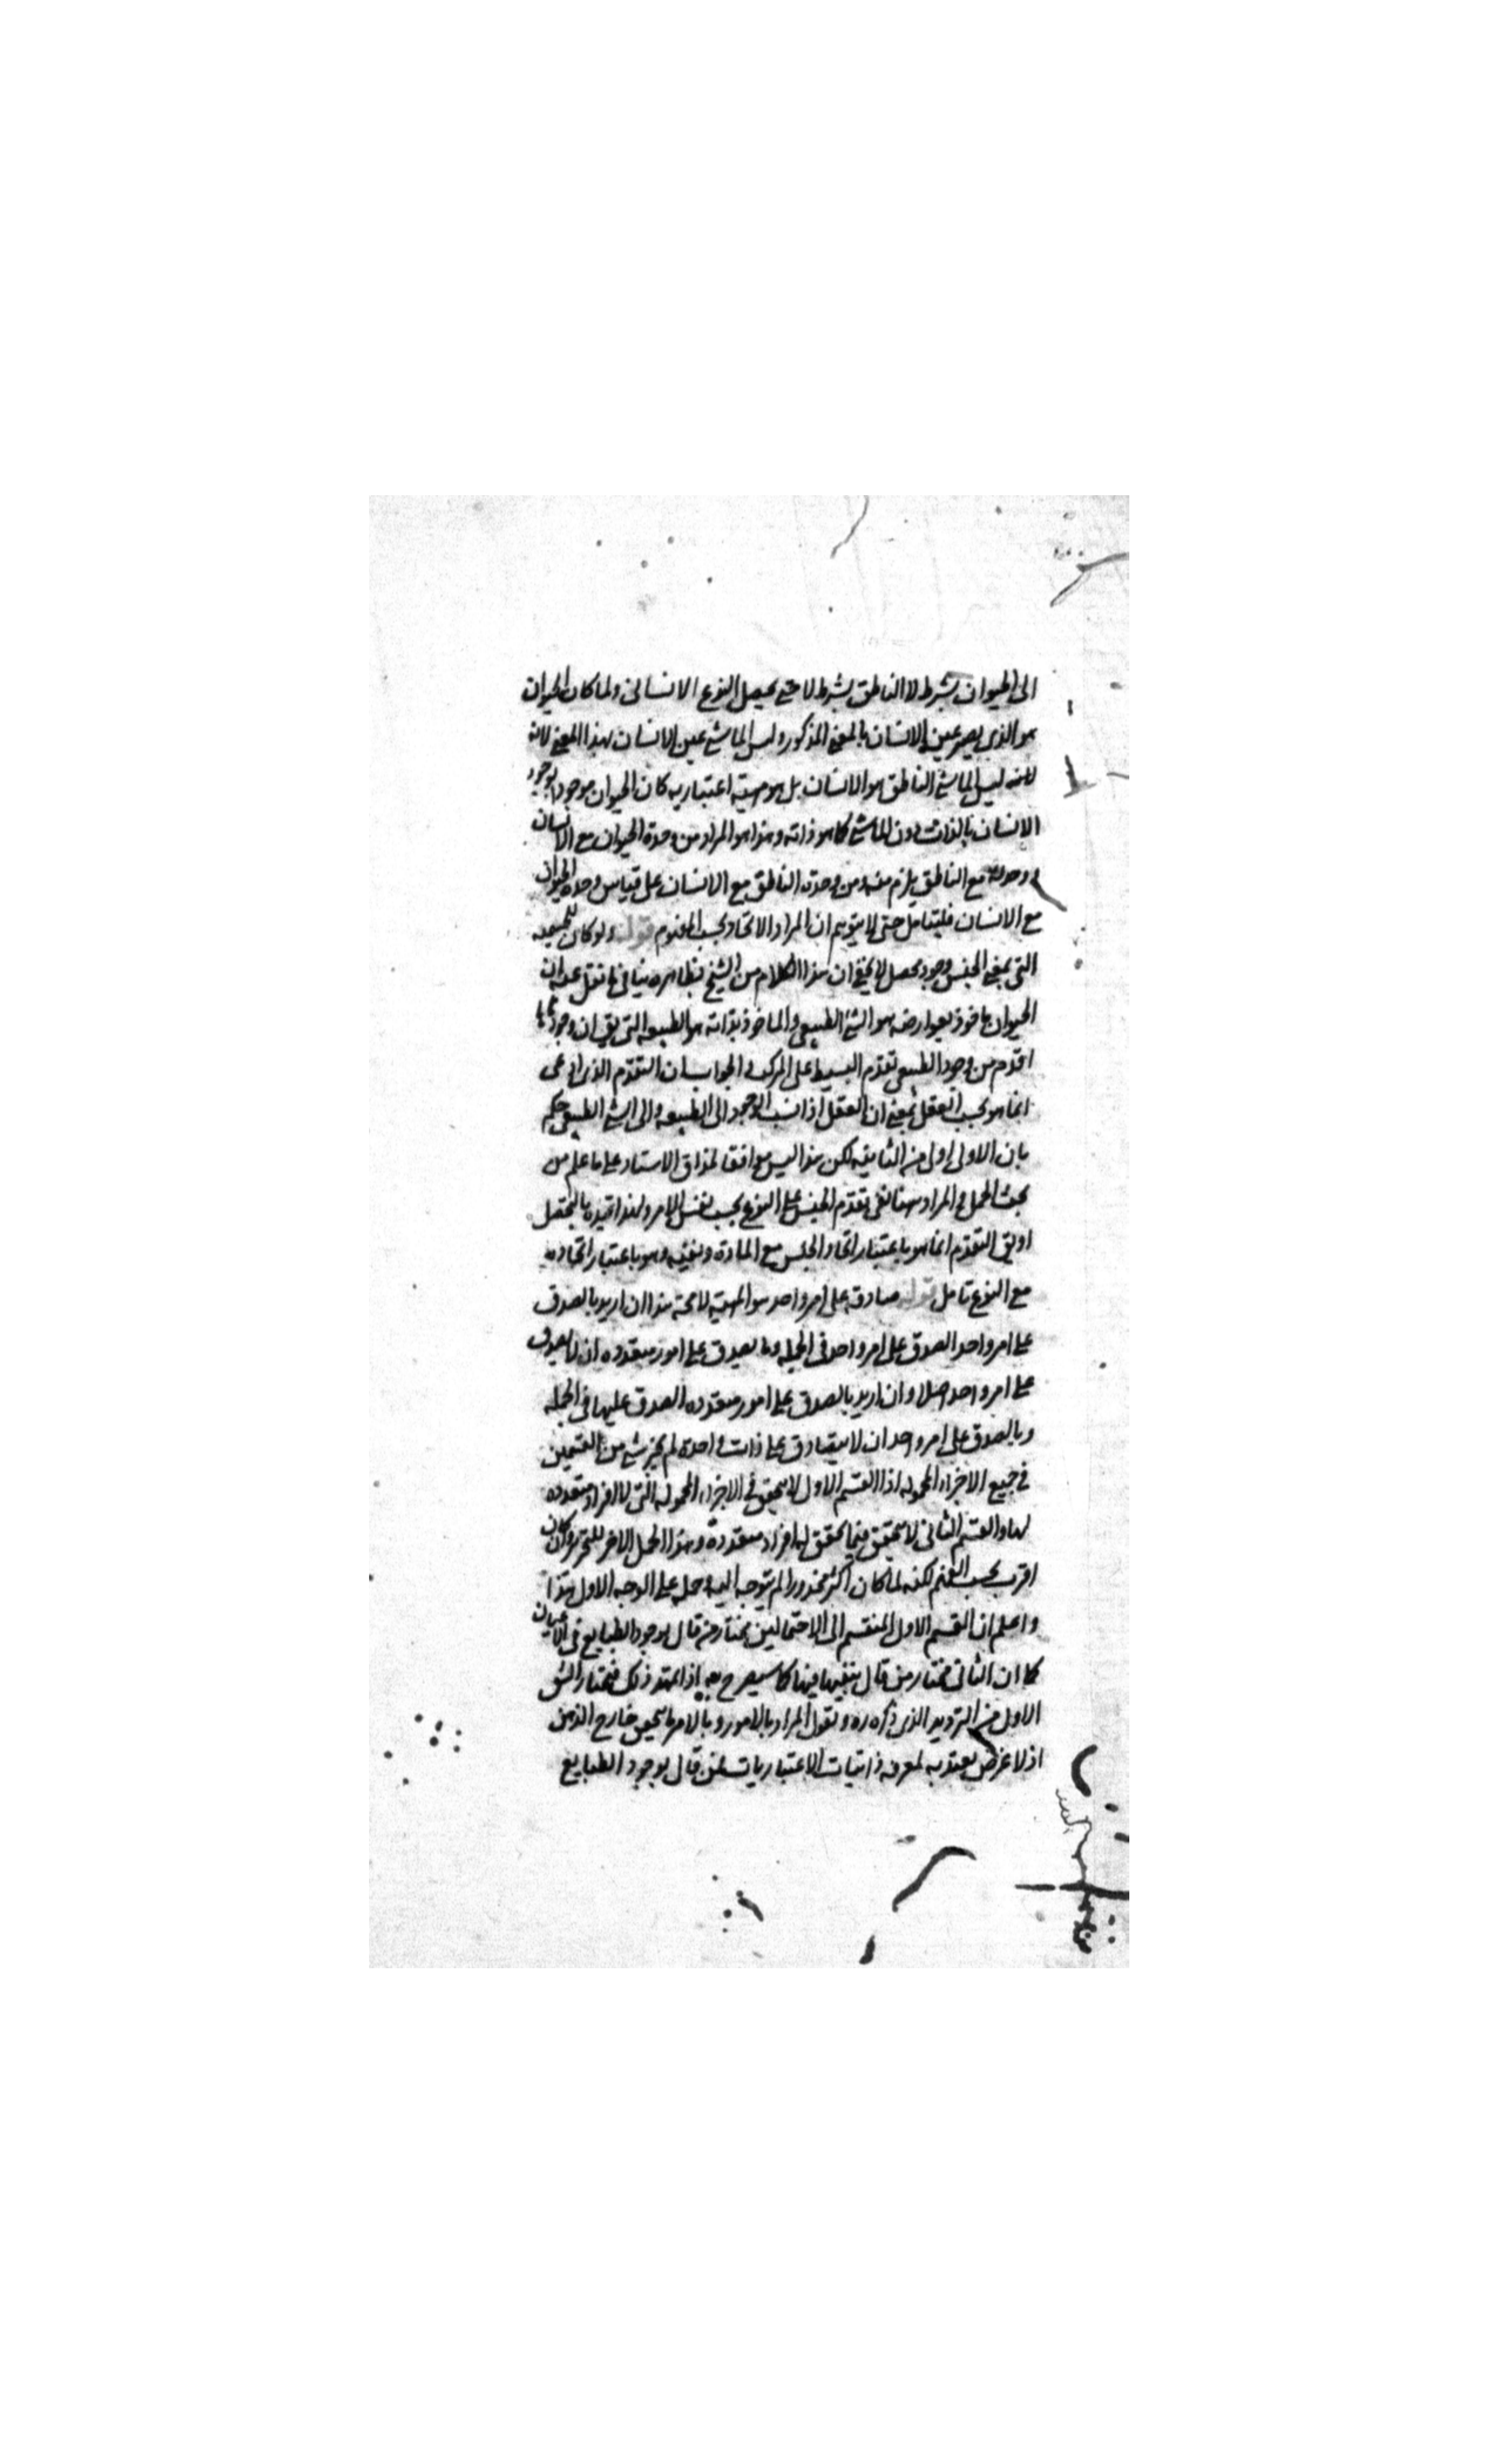 الى الحيوان بشرط لا الناطق بشرط لا حتى يحصل النوع الانسانى ولما كان الحيوان
هو الذى يصير عين الانسان بالمعنى المذكور وليس الماشى عين الانسان بهذا المعنى لانه
لانه ليس الماشى الناطق هو الانسان بل هو مهية اعتباريه كان الحيوان موجودا بوجود
الانسان بالذات دون الماشى كما هو ذاته وهذا هو المراد من وحدة الحيوان مع الانسان
ووحدته مع الناطق يلزم منه ومن وحدة الناطق مع الانسان على قياس وحدة الحيوان
مع الانسان فليتامل حتى لا يتوهم ان المراد الاتحاد بحسب المفهوم قوله ولو كان للجسمية
التى بمعنى الجنس وجود محصل لا يخفى ان هذا الكلام من الشيخ بظاهره ينافى ما نقل عنه ان
الحيوان ماخوذ بعوارضه هو الشئ الطبيعى والماخوذ بذاته هو الطبيعه التى يق ان وجودها
اقدم من وجود الطبيعى تقدم البسيط على المركب والجواب ان التقدم الذى ادعى
انما هو بحسب العقل بمعنى ان العقل اذا نسب الوجود الى الطبيعه والى الشئ الطبيعى حكم
بان الاولى اولى من الثانيه لكن هذا ليس موافقا لمذاق الاستاد على ما علم من
بحث الحمل والمراد هنا نفى تقدم الجنس على النوع بحسب نفس الامر ولهذا قيده بالمحصل
او يق التقدم انما هو باعتبار اتحاد الجنس مع المادة ونفيه وهو باعتبار اتحاده
مع النوع تامل قوله صادقه على امر واحد هو المهية لا محة هذا ان اريد بالصدق
على امر واحد الصدق على امر واحد فى الجمله وما يصدق على امور متعدده ان لا يصدق
على امر واحد اصلا وان اريد بالصدق على امور متعدده الصدق عليها فى الجمله
وبالصدق على امر واحد ان لا يتصادق على ذات واحدة لم يجز شئ من القسمين
فى جميع الاجزاء المحموله اذ القسم الاول لا يتحقق فى الاجزاء المحموله التى لا افراد متعدده
لها والقسم الثانى لا يتحقق فيما يتحقق له افراد متعددة وهذا الحمل الاخر للتحرير وان كان
اقرب بحسب الفهم لكنه لما كان اكثر محذورا لم يتوجه اليه وحمله على الوجه الاول هذا
واعلم ان القسم الاول المنقسم الى الاحتمالين مختار من قال بوجود الطبايع فى الاعيان
كما ان الثانى مختار من قال بنفيها فيها كما سيصرح به اذا تمهد ذلك فنختار الشق
الاول من الترديد الذى ذكره ونقول المراد بالامور وبالامر ما يخص خارج الذهن
اذ لا غرض يعتد به لمعرفه ذاتيات الاعتباريات فمن قال بوجود الطبايع